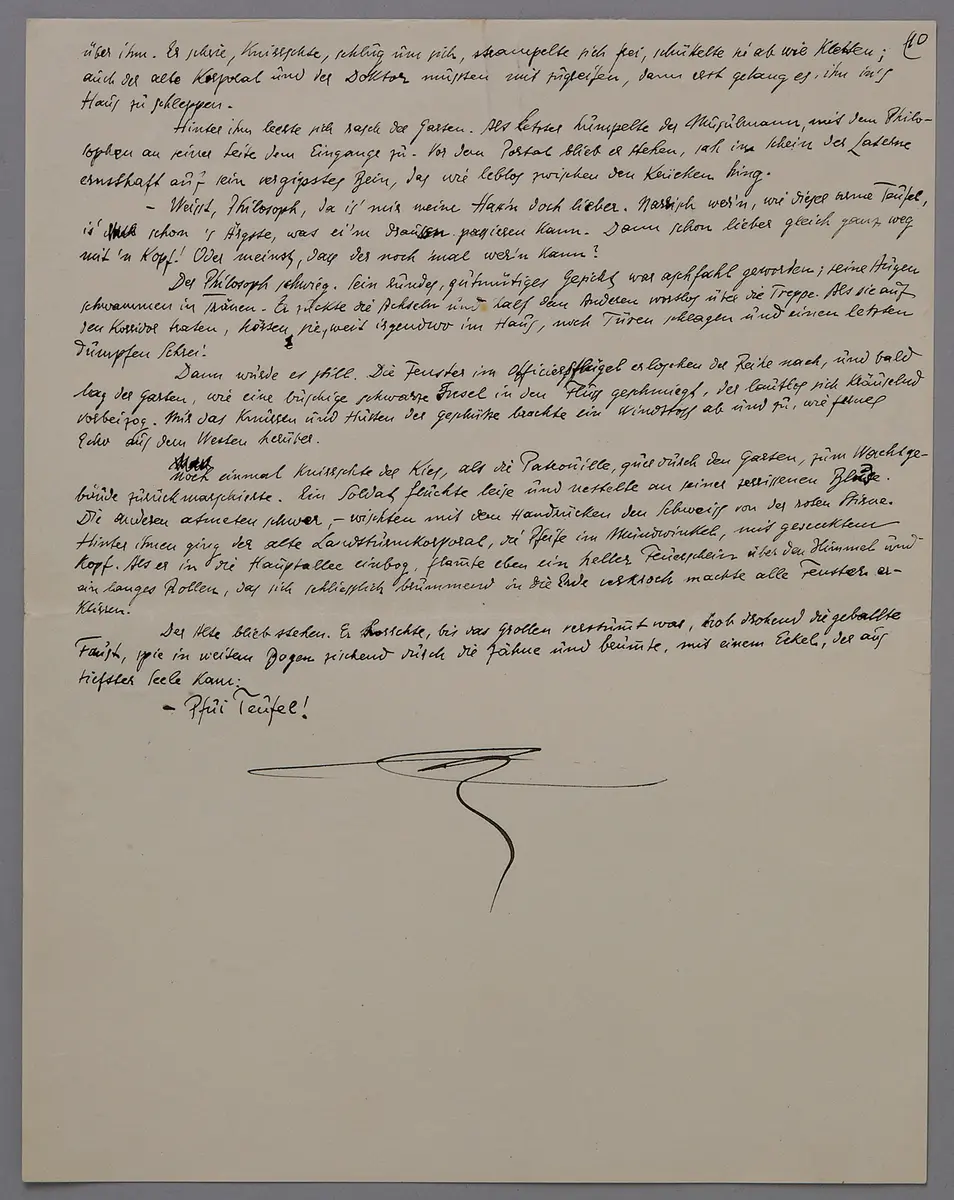 40
über ihm. Er schrie, knirschte, schlug um sich, strampelte sich frei, schüttelte sie ab wie Kletten;
auch der alte Korporal und der Doktor mussten mit zugreifen, dann erst gelang es, ihn in's
Haus zu schleppen.
Hinter ihm leerte sich rasch der Garten. Als letzter humpelte der Muzulmann, mit dem Philo-
sophen an seiner Seite dem Eingange zu. Vor dem Portal blieb er stehen, sah im Schein der Laterne
ernsthaft auf sein vergipsstes Bein, das wie leblos zwischen den Krücken hing.
- Weisst, Philosoph, da is' mir meine Haxn doch lieber. Narrisch wer'n, wie dieser arme Teufel,
is' schon 's Ärgste, was ei'm draussen passieren kann. Dann schon lieber gleich ganz weg
mit 'n Kopf! Oder meinst, dass der noch 'mal wer'n kann?
Der Philosoph schwieg. Sein rundes, gutmütiges Gesicht war aschfahl geworden; seine Augen
schwammen in Tränen. Er zückte die Achseln und half dem Anderen wortlos über die Treppe. Als sie auf
den Korridor traten, hörten sie, weit irgendwo im Haus, noch Türen schlagen und einen letzten
dumpfen Schrei.
Dann wurde es still. Die Fenster im Officiersflügel erloschen der Reihe nach, und bald
lag der Garten, wie eine buschige schwarze Insel in den Fluss geschmiegt, der lautlos sich kräuselnd
vorbeizog. Nur das Knurren und Husten der Geschütze brachte ein Windstoss ab und zu, wie fernes
Echo aus dem Westen herüber.
Noch einmal knirschte der Kies, als die Patrouille, quer durch den Garten, zum Wachtge-
bäude zurückmarschierte. Ein Soldat fluchte leise und nestelte an seiner zerrissenen Bluse.
Die anderen atmeten schwer, - wischten mit dem Handrücken den Schweiss von der roten Stirne.
Hinter ihnen ging der alte Landsturmkorporal, die Pfeife im Mundwinkel, mit gesenktem
Kopf. Als er in die Hauptallee einbog, flammte eben ein heller Feuerschein über den Himmel und
ein langes Rollen, das sich schliesslich brummend in die Erde verkroch machte alle Fenster er-
klirren.
Der Alte blieb stehen. Er horchte, bis das Grollen verstummt war, hob drohend die geballte
Faust, spie in weitem Bogen zischend durch die Zähne und brummte, mit einem Eckel, der aus
tiefster Seele kam:
- Pfui Teufel!